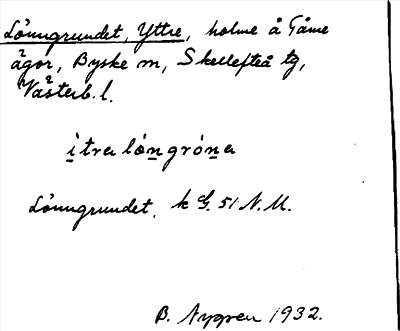 Lönngrundet, Yttre, holme å Tåme
ägor, Byske sn, Skellefteå tg,
Västerb. l.
ìtrɐ lóngróna
Lönngrundet, k G. 51 N. M.
B. Nygren 1932.